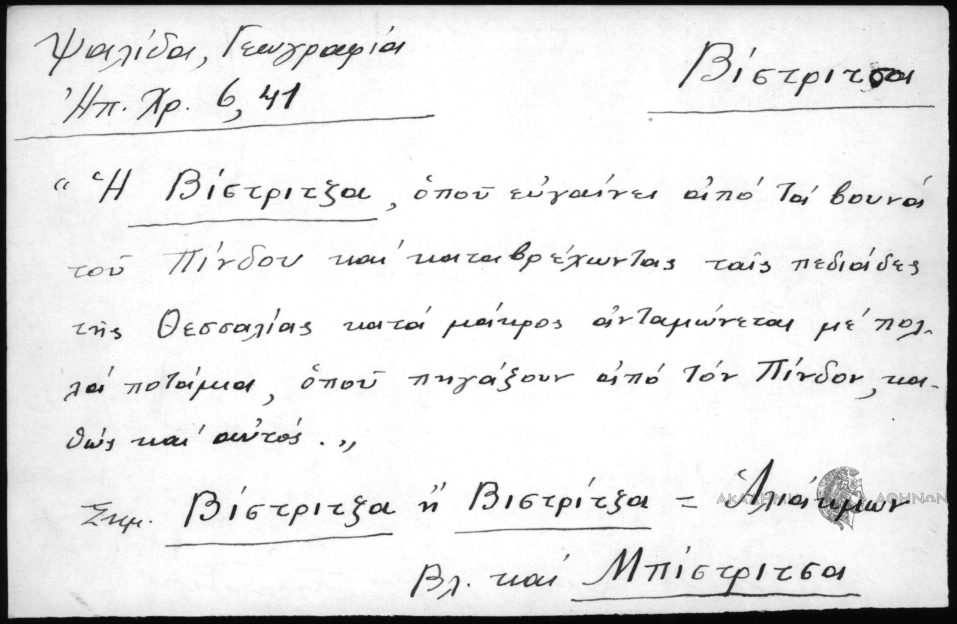 Ψαλίδα, Γεωγραφία
Βίστριτσα
Ἠπ. Χρ. 6, 41
"Ἡ Βίστριτζα, ὁποῦ εὐγαίνει ἀπό τά βουνά
τοῦ Πίνδου καί καταβρέχωντας ταῖς πεδιάδες
τῆς Θεσσαλίας κατά μάκρος ἀνταμώνεται μέ πολ-
λά ποτάμια, ὁποῦ πηγάζουν ἀπό τόν Πίνδον, κα-
θώς καί αὐτός."
Σημ. Βίστριτζα ἤ Βιστρίτζα = Ἁλιάκμων
ΑΚΑΔΗΜΙΑ ΑΘΗΝΩΝ
Βλ. καί Μπίστριτσα